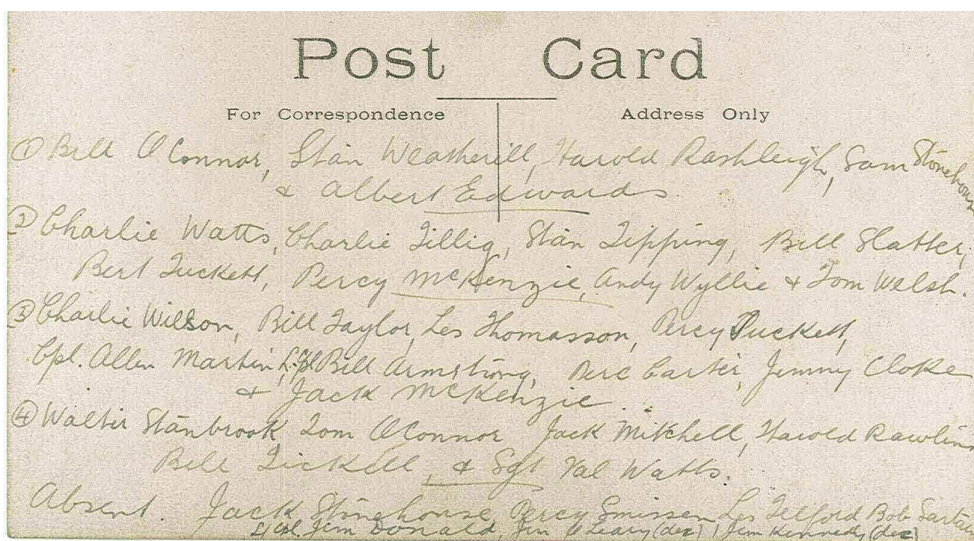 Post Card
For Correspondence Address Only
① Bill O'Connor, Stan Weatherill, Harold Rashleigh, Sam Stonehouse
& Albert Edwards.
② Charlie Watts, Charlie Tillig, Stan Tipping, Bill Slatter,
Bert Tuckett, Percy McKenzie, Andy Wyllie & Tom Welsh.
③ Charlie Wilson, Bill Taylor, Les Thomasson, Percy Puckett,
Cpl. Allen Martin, Bill Armstrong, Perc Carter, Jimmy Cloke
& Jack McKenzie
④ Walter Stanbrook, Tom O'Connor, Jack Mitchell, Harold Rawlins
Bill Tickell, & Sgt Val Watts.
Absent. Jack Stonehouse, Percy Smissen, Les Telford Bob
L/Cpl. Jim Donald, Jim O'Leary (dec), Jim Kennedy (dec)